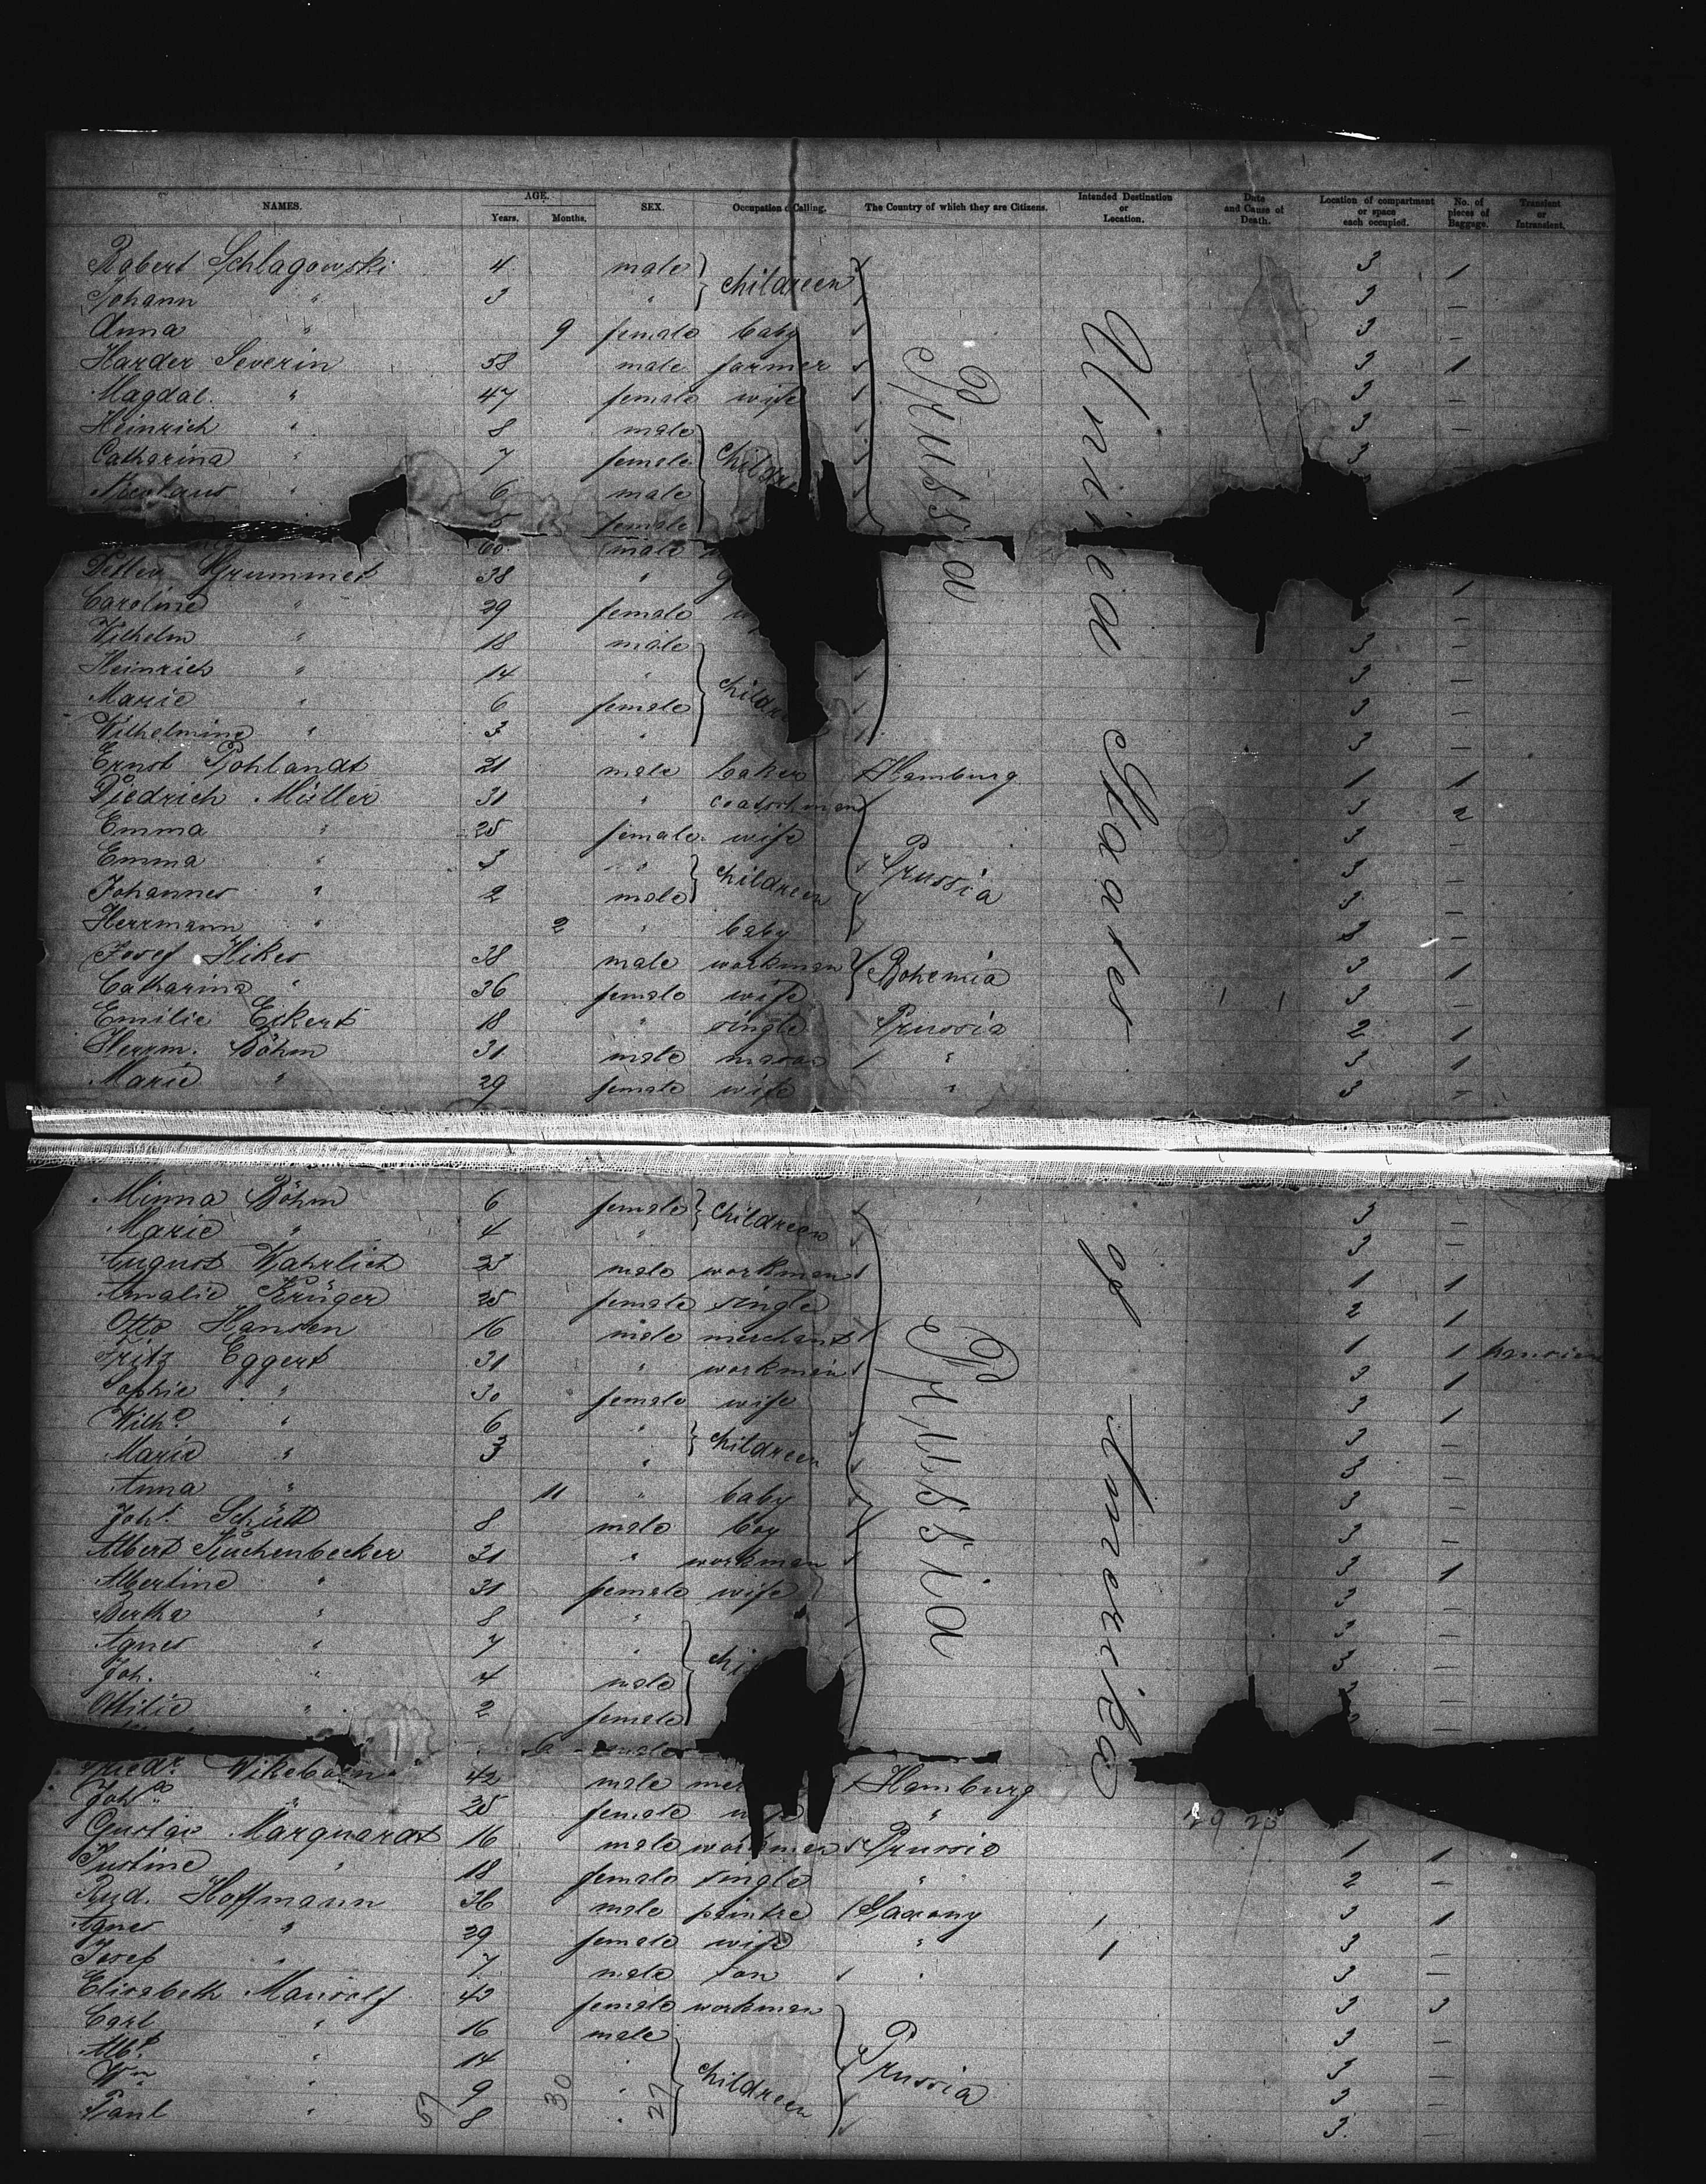 NAMES. AGE. Years. Months. SEX. Occupation or Calling. The Country of which they are Citizens. Intended Destination or Location. Date and Cause of Death. Location of compartment or space each occupied. No. of pieces of Baggage. Transient or Intransient.
Robert Schlagowski 4 male children Prussia United Staates of Amerika 3 1
Johann " 3 " 3 —
Anna " 9 female baby 3 —
Harder Severin 58 male farmer 3 1
Magdal. " 47 female wife 3 —
Heinrich " 8 male 3 —
Catharina " 7 female 3 —
Nicolaus " 6 male
5 female
60 male
Detlev Grummet 38 " 1
Caroline " 29 female —
Wilhelm " 18 male 3 —
Heinrich " 14 " 3 —
Marie " 6 female 3 —
Wilhelmine " 3 " 3 —
Ernst Pohlandt 21 male baker Hamburg 1 1
Diedrich Müller 31 " coatschman Prussia 3 2
Emma " 25 female wife 3 —
Emma " 3 " children 3 —
Johannes " 2 male 3 —
Herrmann " 2 " baby 3 —
Josef Hiker 38 male workman Bohemia 3 1
Catharina " 36 female wife 3 —
Emilie Eckert 18 " single Prussia 2 1
Herrm. Böhm 31 male mason " 3 1
Marie " 29 female wife " 3 —
Minna Böhm 6 female children Prussia 3 —
Marie " 4 " 3 —
August Wahrlich 23 male workman 1 1
Amalie Krüger 25 female single 2 1
Otto Hansen 16 male merchant 1 1
Fritz Eggert 31 " workman 3 1
Sophie " 30 female wife 3 1
Wilhe. " 6 " children 3 —
Marie " 3 " 3 —
Anna " 11 " baby 3 —
Joh. Schütt 8 male boy 3 —
Albert Kuchenbecker 31 " workman 3 1
Albertine " 31 female wife 3 —
Bertha " 8 " 3 —
Agnes " 7 " 3 —
Joh. " 4 male 3 —
Ottilie " 2 female —
Friedr. Wikeboin 42 male Hamburg
Joh. " 25 female wife "
29 23
Gustav Marquardt 16 male workman Prussia 1 1
Justine " 18 female single " 2 —
Rud. Hoffmann 36 male paintre Saxony 3 1
Agnes " 29 female wife " 3 —
Josef " 7 male son " 3 —
Elisabeth Manrolf 43 female workman Prussia 3 3
Carl " 16 male children 3 —
Alb. " 14 " 3 —
Wm " 9 " 3 —
Paul " 8 " 3 —
57 30 27